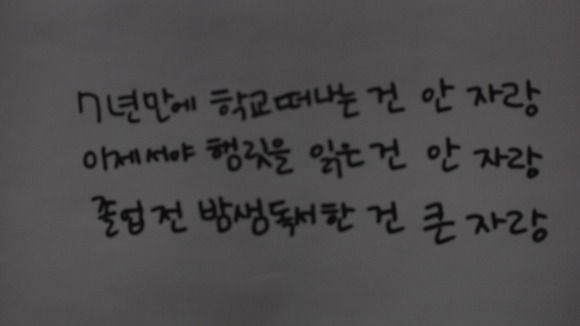 7년만에 학교떠나는 건 안 자랑
이제서야 햄릿을 읽은 건 안 자랑
졸업 전 밤샘독서한 건 큰 자랑